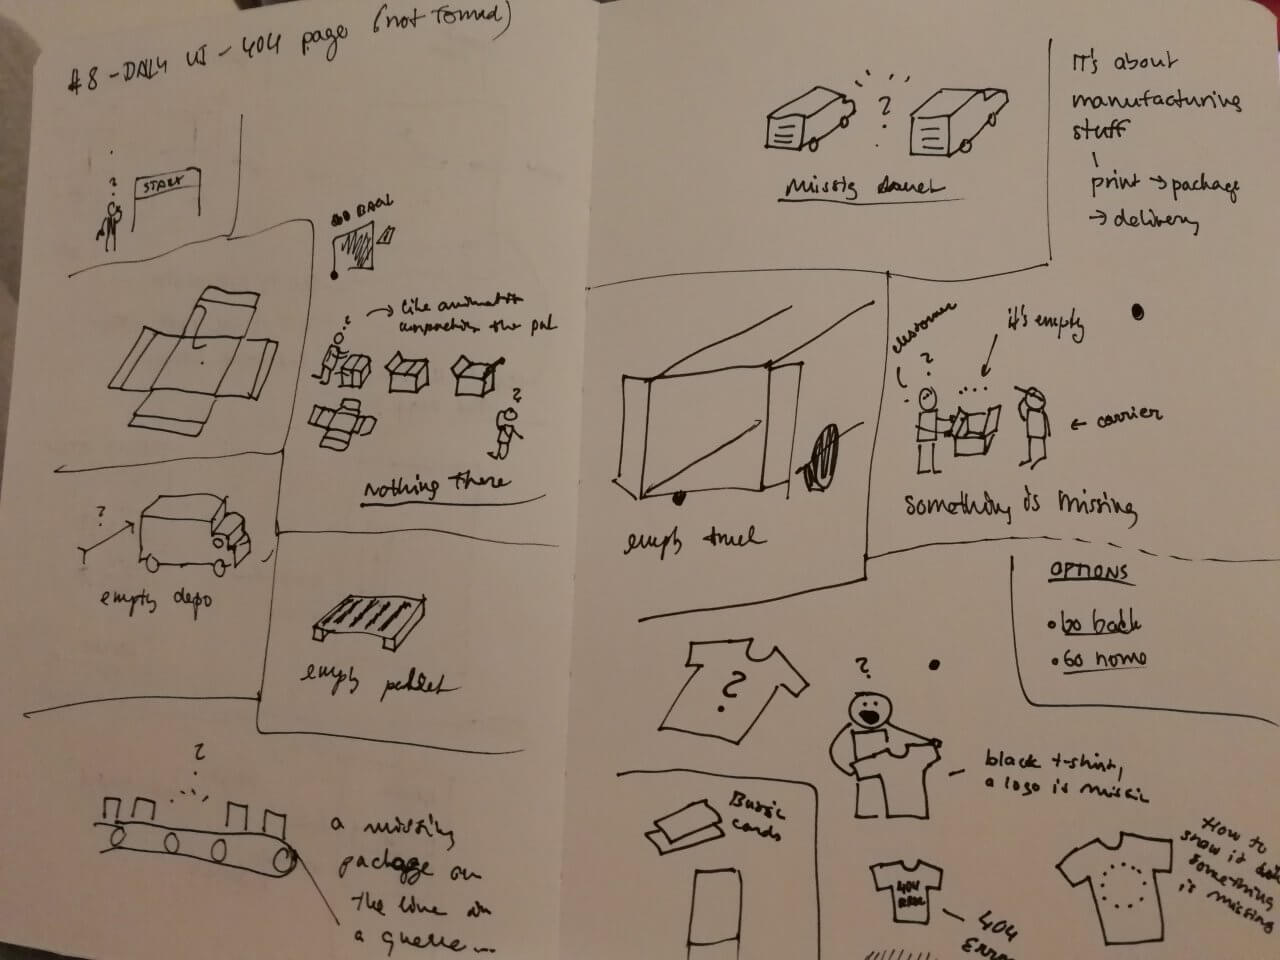 #8 - DAILY UI - 404 page (not found)
?
START
GO BACK
?
→ like animation
unpacking the
?
Nothing there
?
empty depo
empty pallet
?
a missing
package on
the line in
a queue...
?
missig
It's about
manufacturing
stuff
print → package
→ delivery
empty truck
customer
?
it's empty
← carrier
something is missing
OPTIONS
• Go back
• Go home
?
?
black t-shirt,
a logo is missin
Busic
cards
404
ERROR
404
Error
How to
show it that
something
is missing